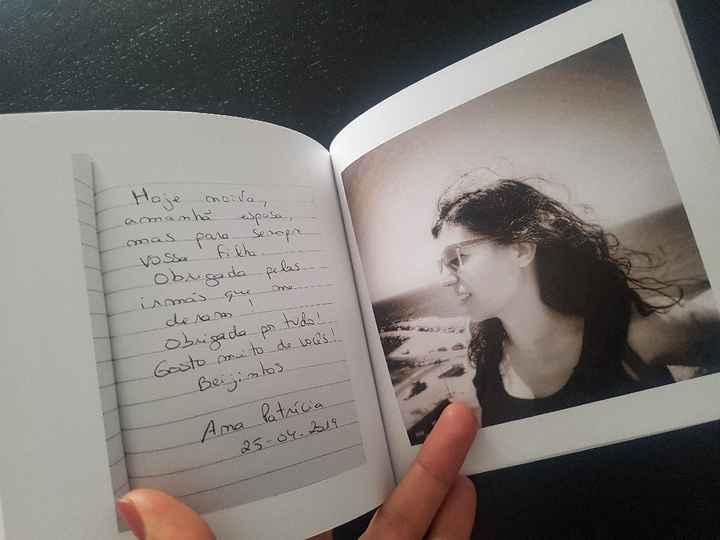 Hoje noiva,
amanhã esposa,
mas para sempre
vossa filha
Obrigada pelas
irmãs que me
deram!
Obrigada por tudo!
Gosto muito de vocês!
Beijinhos
Ana Patrícia
25-04-2019